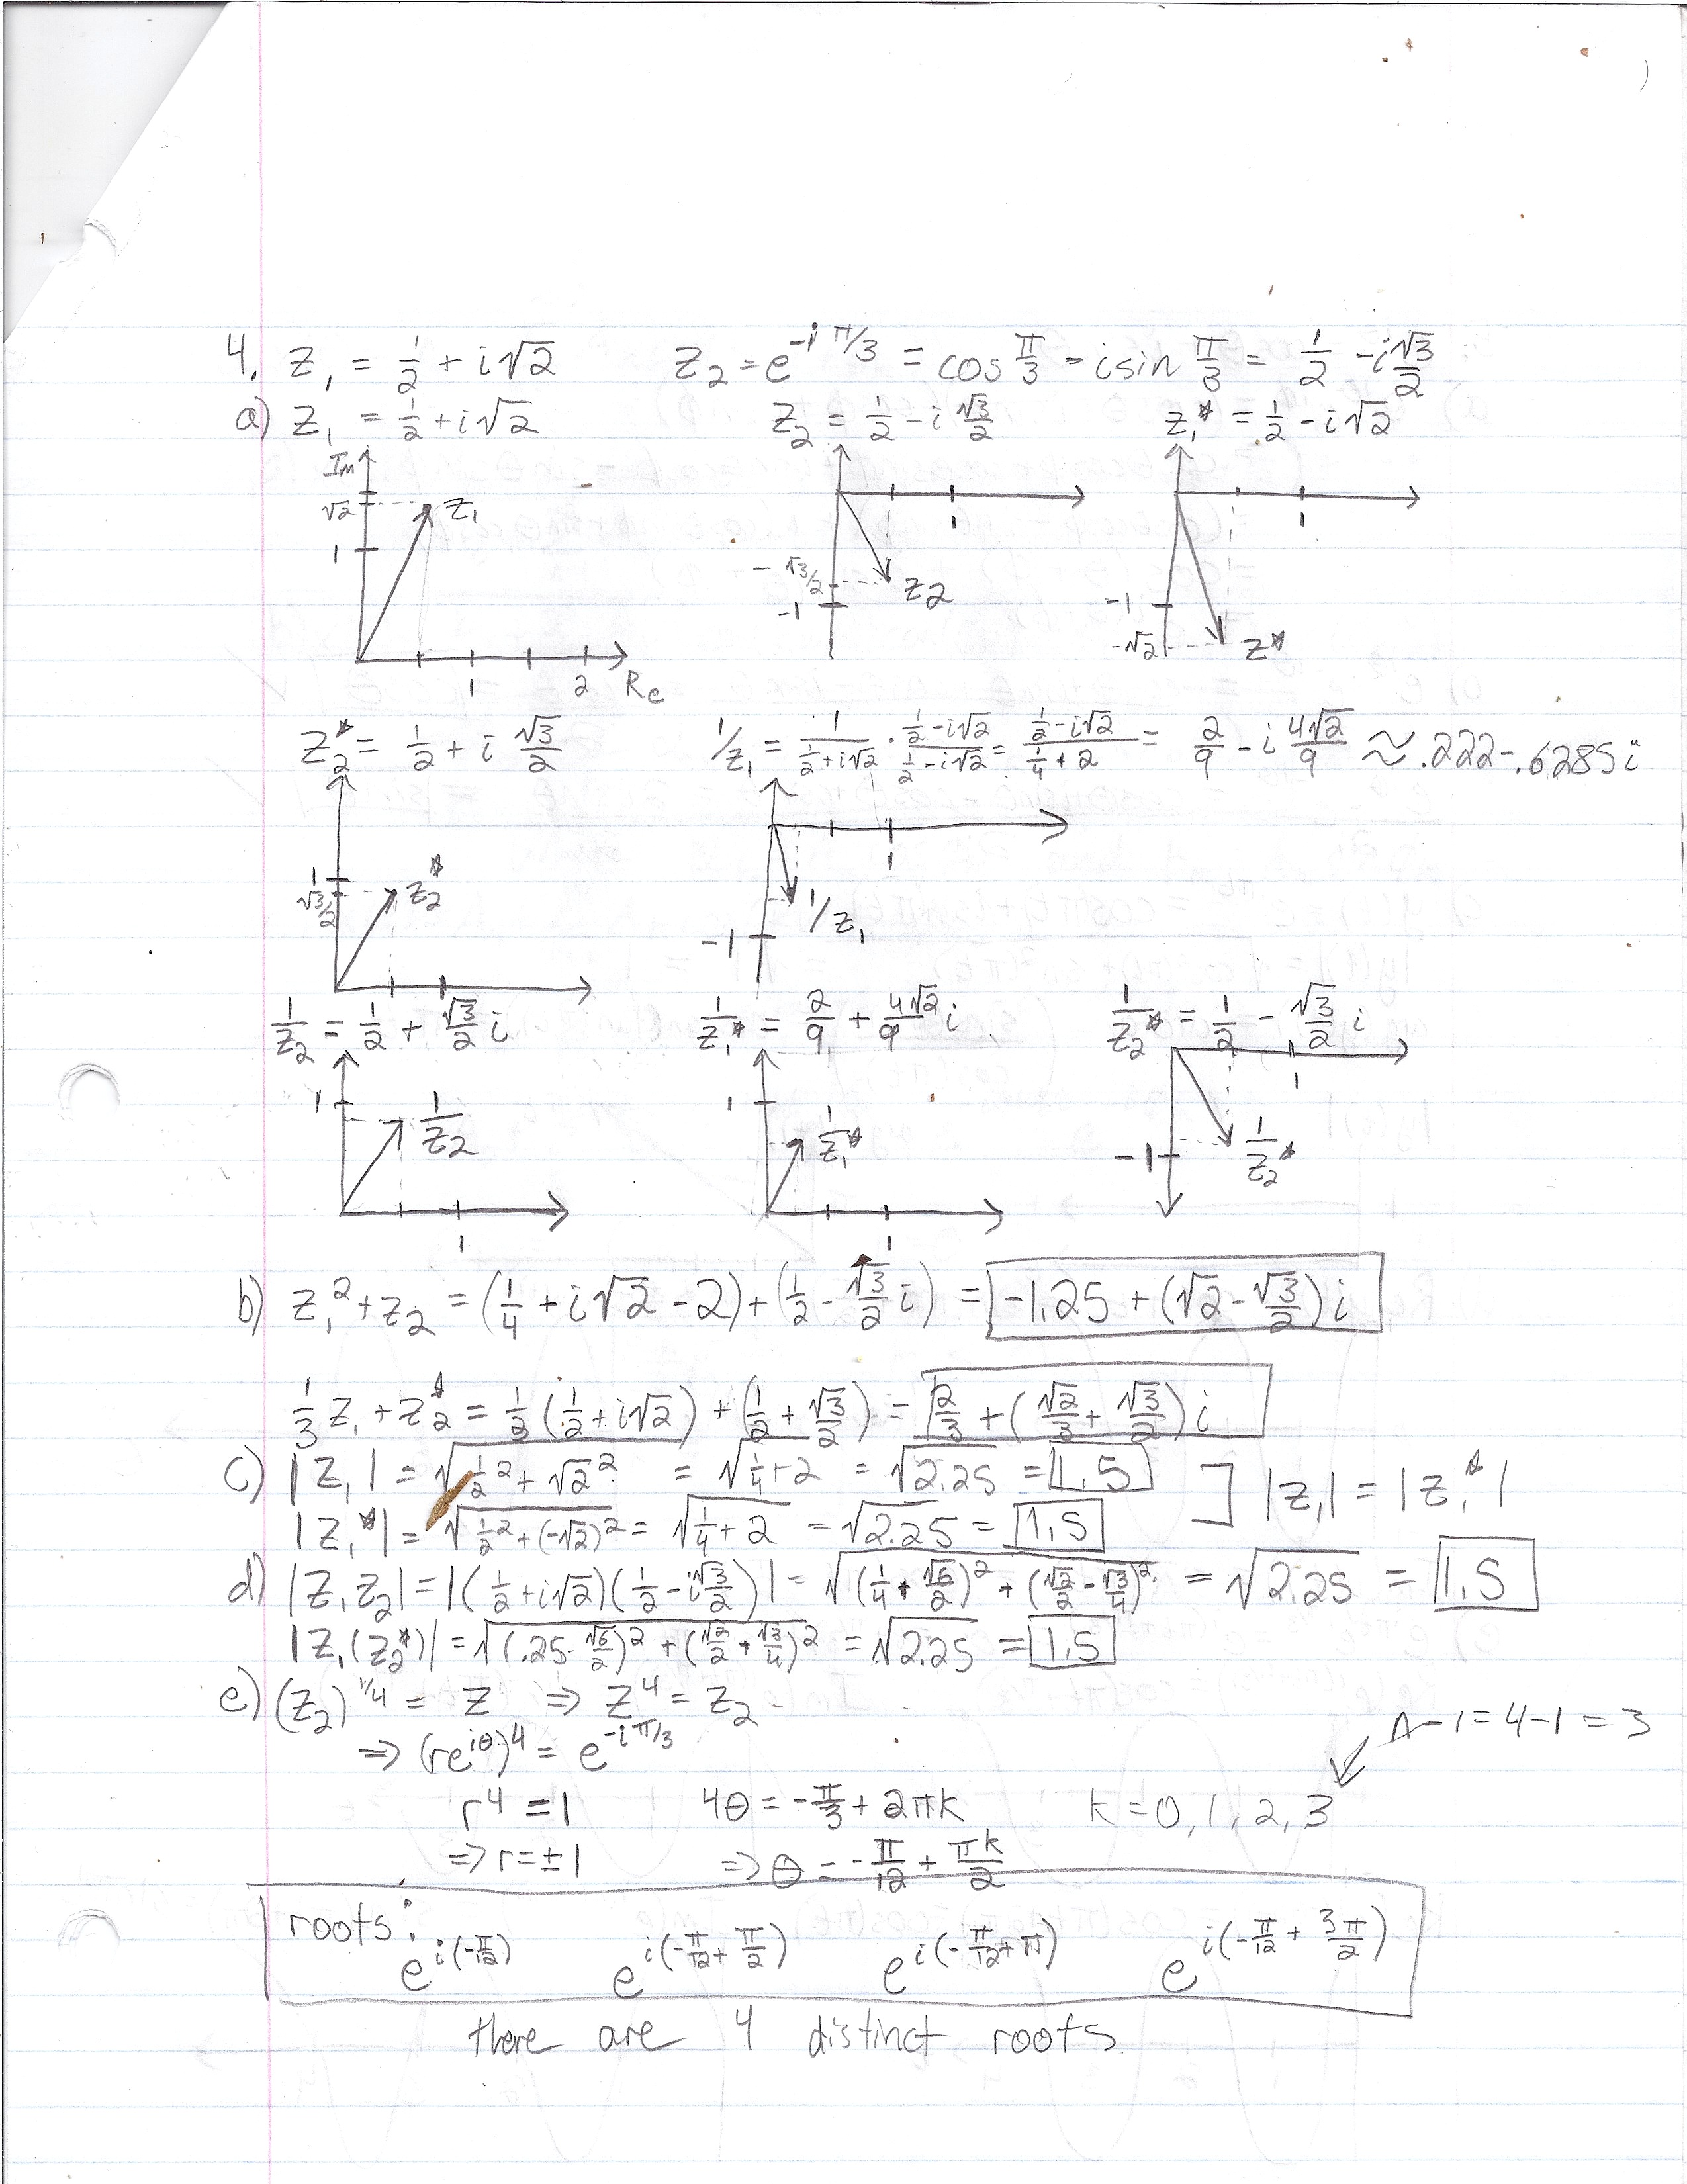 4. z₁ = 1/2 + i√2    z₂ = e^(-iπ/3) = cos π/3 - i sin π/3 = 1/2 - i √3/2
a) z₁ = 1/2 + i√2    z₂ = 1/2 - i √3/2    z₁* = 1/2 - i√2
Im √2 1 z₁ 1 2 Re
1 -√3/2 -1 z2
1 -1 -√2 z*
z₂* = 1/2 + i √3/2    1/z₁ = 1/(1/2 + i√2) · (1/2 - i√2)/(1/2 - i√2) = (1/2 - i√2)/(1/4 + 2) = 2/9 - i 4√2/9 ≈ .222 - .6285i
1 √3/2 z₂*
1 -1 1/z₁
1/z₂ = 1/2 + √3/2 i    1/z₁* = 2/9 + 4√2/9 i    1/z₂* = 1/2 - √3/2 i
1 1/z₂ 1
1 1/z₁* 1
1 -1 1/z₂*
b) z₁² + z₂ = (1/4 + i√2 - 2) + (1/2 - √3/2 i) = -1.25 + (√2 - √3/2) i
1/3 z₁ + z₂* = 1/3 (1/2 + i√2) + (1/2 + √3/2) = 2/3 + (√2/3 + √3/2) i
c) |z₁| = √(1/2² + √2²) = √(1/4 + 2) = √2.25 = 1.5    ] |z₁| = |z₁*|
|z₁*| = √(1/2² + (-√2)²) = √(1/4 + 2) = √2.25 = 1.5
d) |z₁z₂| = |(1/2 + i√2)(1/2 - i√3/2)| = √((1/4 + √6/2)² + (√2/2 - √3/4)²) = √2.25 = 1.5
|z₁(z₂*)| = √((.25 - √6/2)² + (√2/2 + √3/4)²) = √2.25 = 1.5
e) (z₂)^(1/4) = z ⇒ z⁴ = z₂
⇒ (re^(iθ))⁴ = e^(-iπ/3)    n-1 = 4-1 = 3
r⁴ = 1    4θ = -π/3 + 2πk    k = 0, 1, 2, 3
⇒ r = ±1    ⇒ θ = -π/12 + πk/2
roots: e^(i(-π/12))    e^(i(-π/12 + π/2))    e^(i(-π/12 + π))    e^(i(-π/12 + 3π/2))
there are 4 distinct roots.